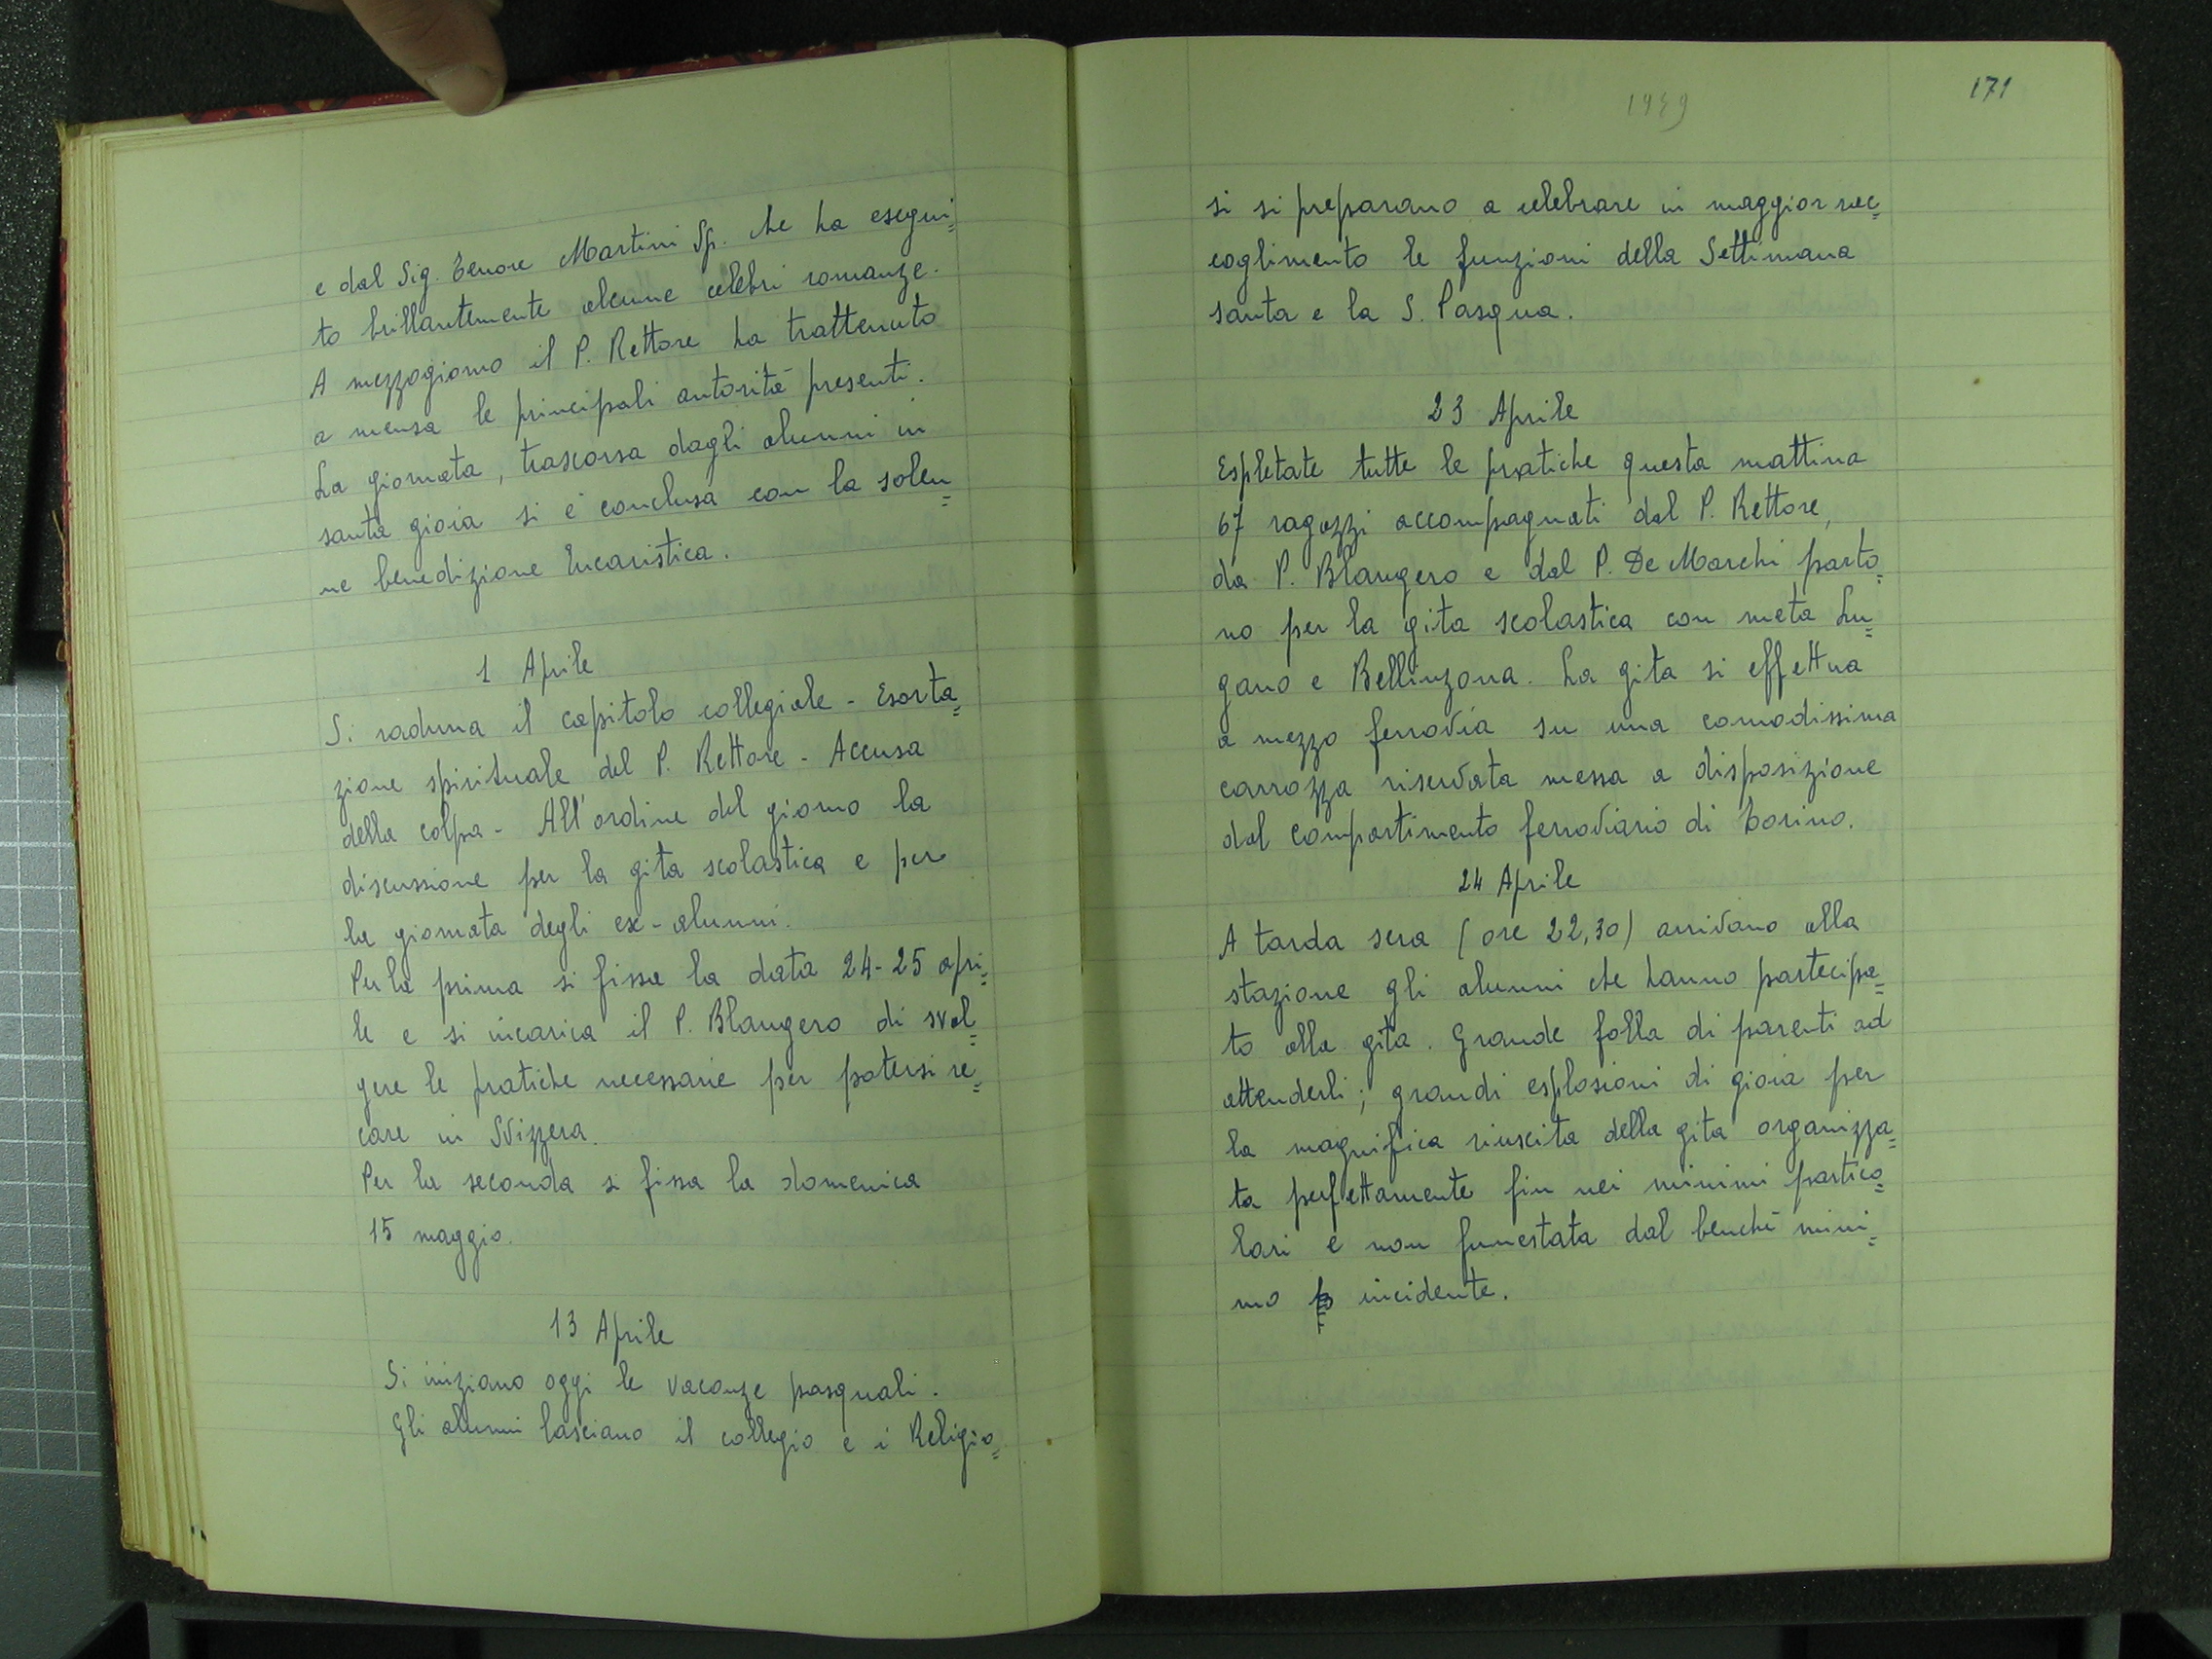 e dal Sig. Tenore Martini Sp. che ha esegui=
to brillantemente alcune celebri romanze.
A mezzogiorno il P. Rettore ha trattenuto
a mensa le principali autorità presenti.
La giornata, trascorsa dagli alunni in
santa gioia si è conclusa con la solen=
ne benedizione Eucaristica.
1 Aprile
Si raduna il capitolo collegiale - Esorta=
zione spirituale del P. Rettore - Accusa
della colpa - All'ordine del giorno la
discussione per la gita scolastica e per
la giornata degli ex-alunni.
Per la prima si fissa la data 24-25 apri=
le e si incarica il P. Blangero di svol=
gere le pratiche necessarie per potersi re=
care in Svizzera.
Per la seconda si fissa la domenica
15 maggio.
13 Aprile
Si iniziano oggi le vacanze pasquali.
Gli alunni lasciano il collegio e i Religio=
1949
171
si si preparano a celebrare in maggior rac=
coglimento le funzioni della Settimana
santa e la S. Pasqua.
23 Aprile
Espletate tutte le pratiche questa mattina
67 ragazzi accompagnati dal P. Rettore,
da P. Blangero e dal P. De Marchi parto=
no per la gita scolastica con meta Lu=
gano e Bellinzona. La gita si effettua
a mezzo ferrovia su una comodissima
carrozza riservata messa a disposizione
dal compartimento ferroviario di Torino.
24 Aprile
A tarda sera (ore 22,30) arrivano alla
stazione gli alunni che hanno partecipa=
to alla gita. Grande folla di parenti ad
attenderli; grandi esplosioni di gioia per
la magnifica riuscita della gita organizza=
ta perfettamente fin nei minimi partico=
lari e non funestata dal benché mini=
mo incidente.